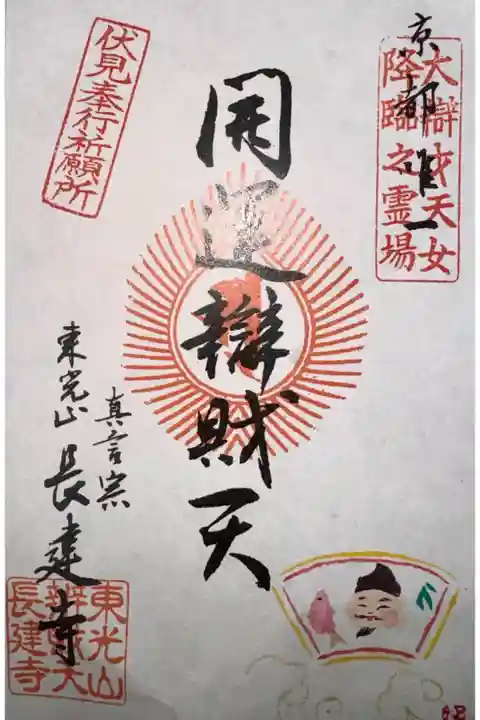 京都唯一
大辯才天女
降臨之霊場
開運辯財天
伏見奉行祈願所
真言宗
東光山 長建寺
東光山
辨財天
長建寺